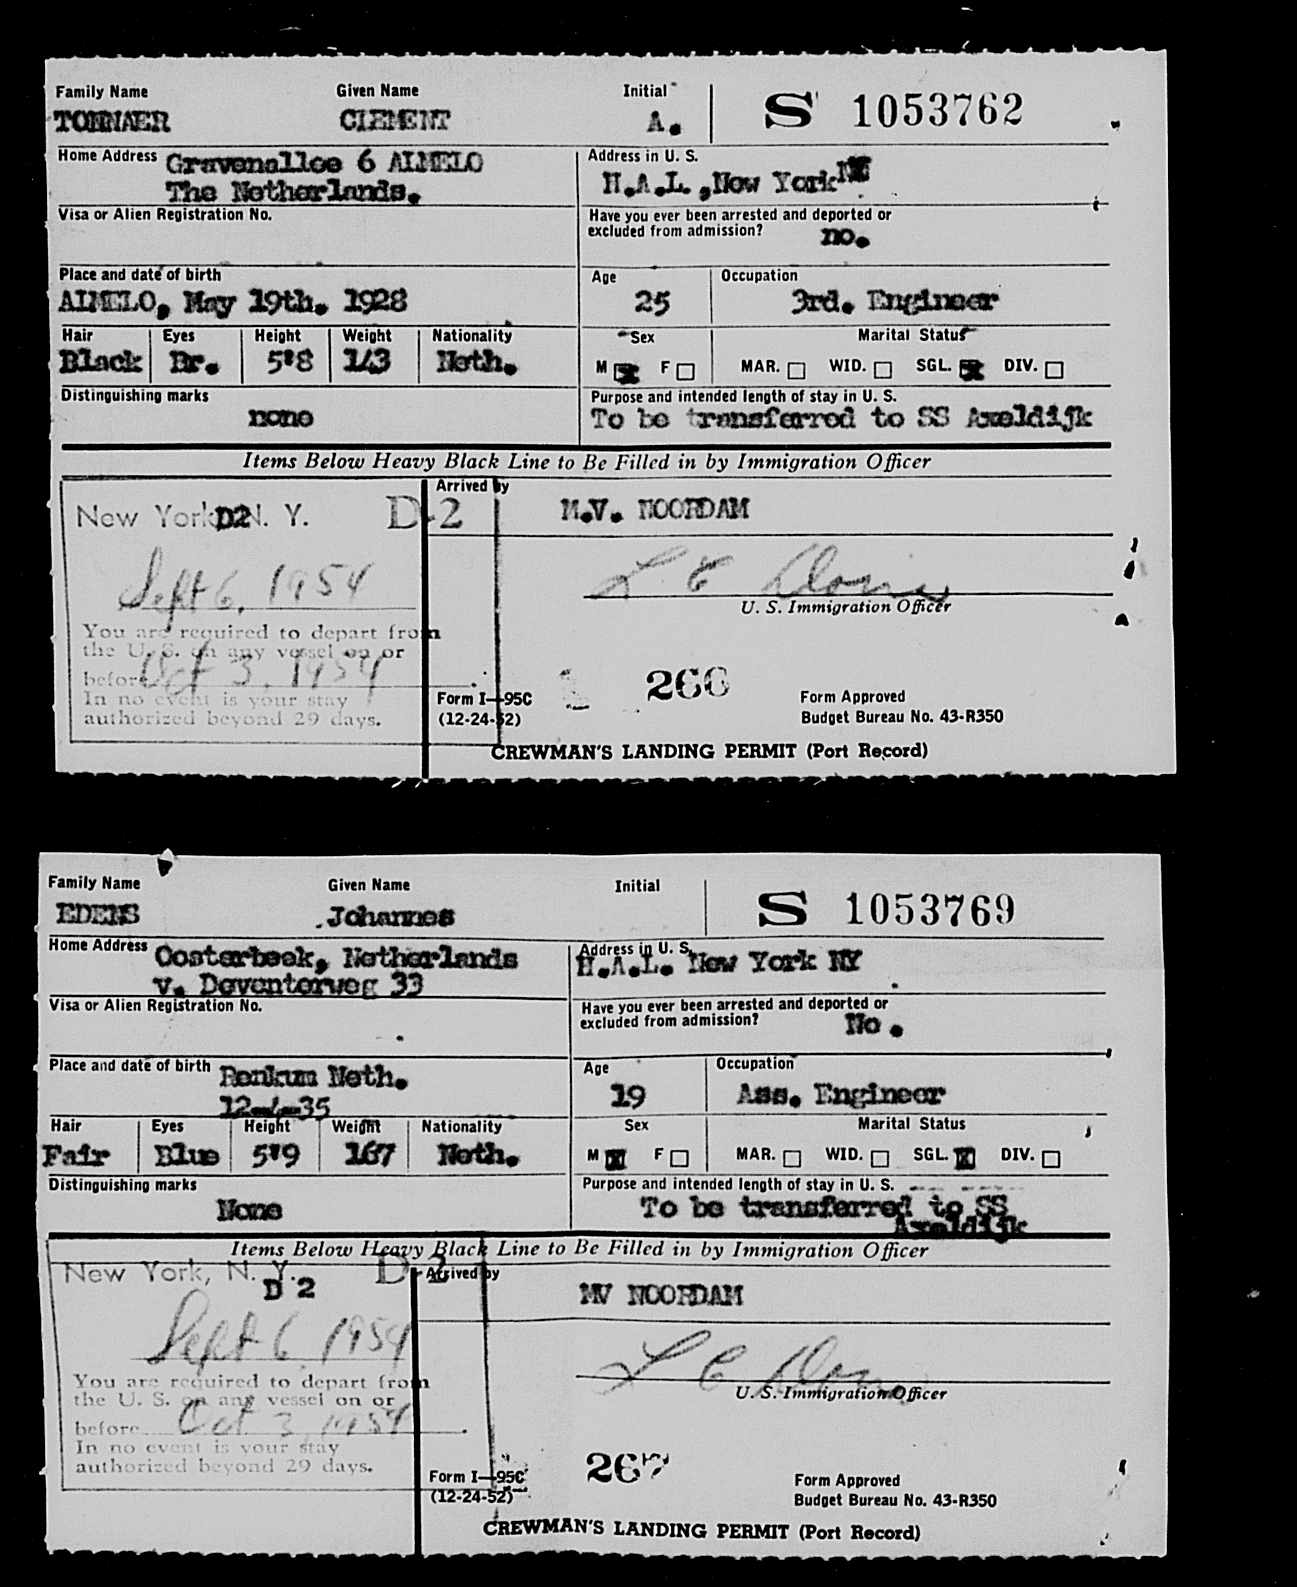 Family Name Given Name Initial S 1053762
TONNAER CLEMENT A.
Home Address Gravenallee 6 ALMELO
The Netherlands.
Address in U. S.
H.A.L.,New York NY
Visa or Alien Registration No.
Have you ever been arrested and deported or
excluded from admission? no.
Place and date of birth
ALMELO, May 19th. 1928
Age Occupation
25 3rd. Engineer
Hair Eyes Height Weight Nationality
Black Br. 5'8 143 Neth.
Sex Marital Status
M F MAR. WID. SGL. DIV.
Distinguishing marks
none
Purpose and intended length of stay in U. S.
To be transferred to SS Axeldijk
Items Below Heavy Black Line to Be Filled in by Immigration Officer
New York, N. Y. D-2
D2
Sept 6, 1954
You are required to depart from
the U. S. on any vessel on or
before Oct 3, 1954
In no event is your stay
authorized beyond 29 days.
Arrived by
M.V. NOORDAM
L E
U. S. Immigration Officer
266
Form I—95C
(12-24-52)
Form Approved
Budget Bureau No. 43-R350
CREWMAN'S LANDING PERMIT (Port Record)
Family Name Given Name Initial S 1053769
EDENS Johannes
Home Address Oosterbeek, Netherlands
v. Deventerweg 33
Address in U. S.
H.A.L. New York NY
Visa or Alien Registration No.
Have you ever been arrested and deported or
excluded from admission? No.
Place and date of birth Renkum Neth.
12-4-35
Age Occupation
19 Ass. Engineer
Hair Eyes Height Weight Nationality
Fair Blue 5'9 167 Neth.
Sex Marital Status
M F MAR. WID. SGL. DIV.
Distinguishing marks
None
Purpose and intended length of stay in U. S.
To be transferred to SS
Axeldijk
Items Below Heavy Black Line to Be Filled in by Immigration Officer
New York, N. Y. D-2
D 2
Sept 6 1954
You are required to depart from
the U. S. on any vessel on or
before Oct 3, 1954
In no event is your stay
authorized beyond 29 days.
Arrived by
MV NOORDAM
L E
U. S. Immigration Officer
267
Form I—95C
(12-24-52)
Form Approved
Budget Bureau No. 43-R350
CREWMAN'S LANDING PERMIT (Port Record)